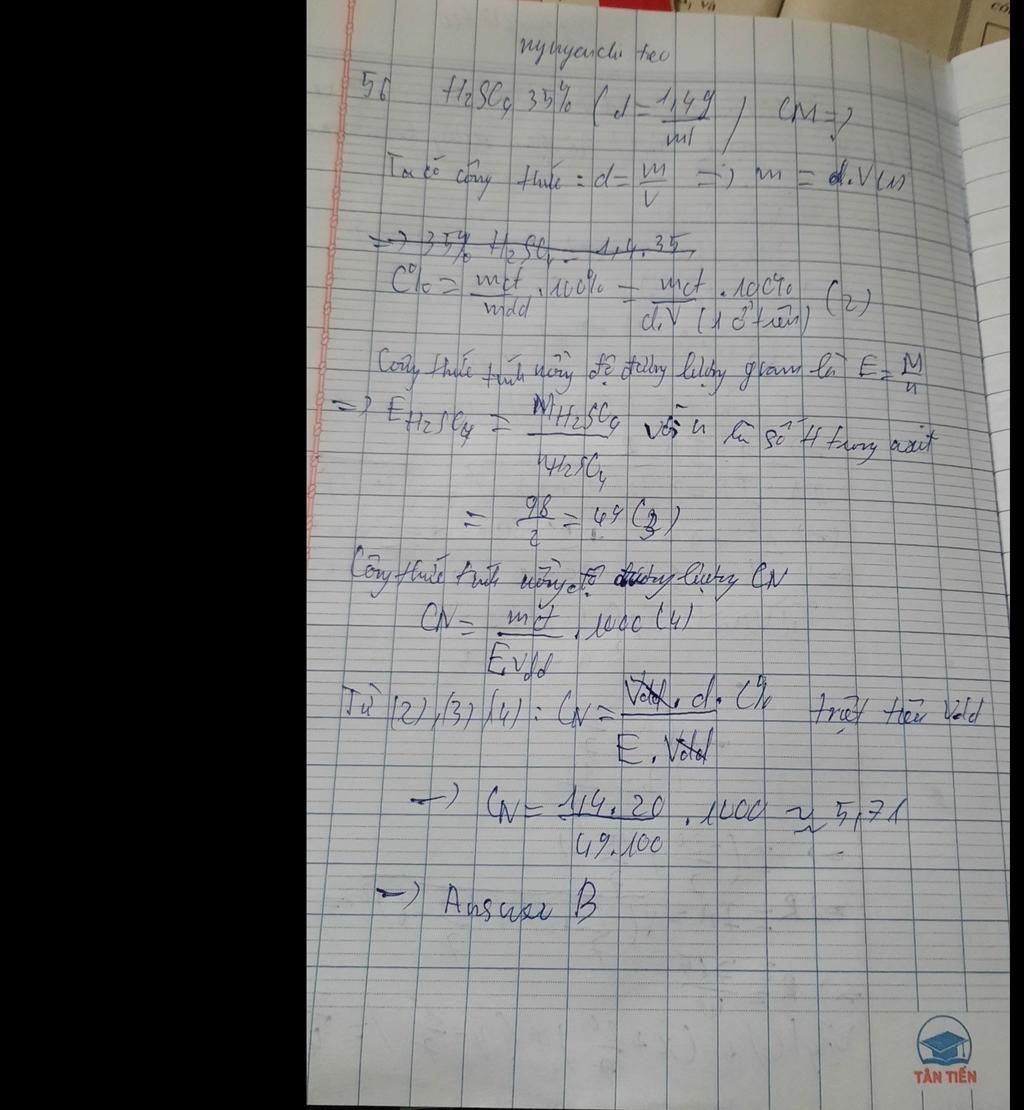 56 H2SO4 35% (d = 1,4g/ml) CM = ?
Ta có công thức : d = m/V => m = d.V (1)
=> 35% H2SO4 = 1,4.35
C% = mct/mdd . 100% = mct/d.V (1 ở trên) . 100% (2)
Công thức tính nồng độ đương lượng gram là E = M/n
=> E H2SO4 = M H2SO4 / n H2SO4 với n là số H trong axit
= 98/2 = 49 (3)
Công thức tính nồng độ đương lượng CN
CN = mct/E.Vdd . 1000 (4)
Từ (2), (3) (4) : CN = Vdd . d . C% / E . Vdd triệt tiêu Vdd
=> CN = 1,4.20/49.100 . 1000 ≈ 5,71
=> Answer B
TÂN TIẾN